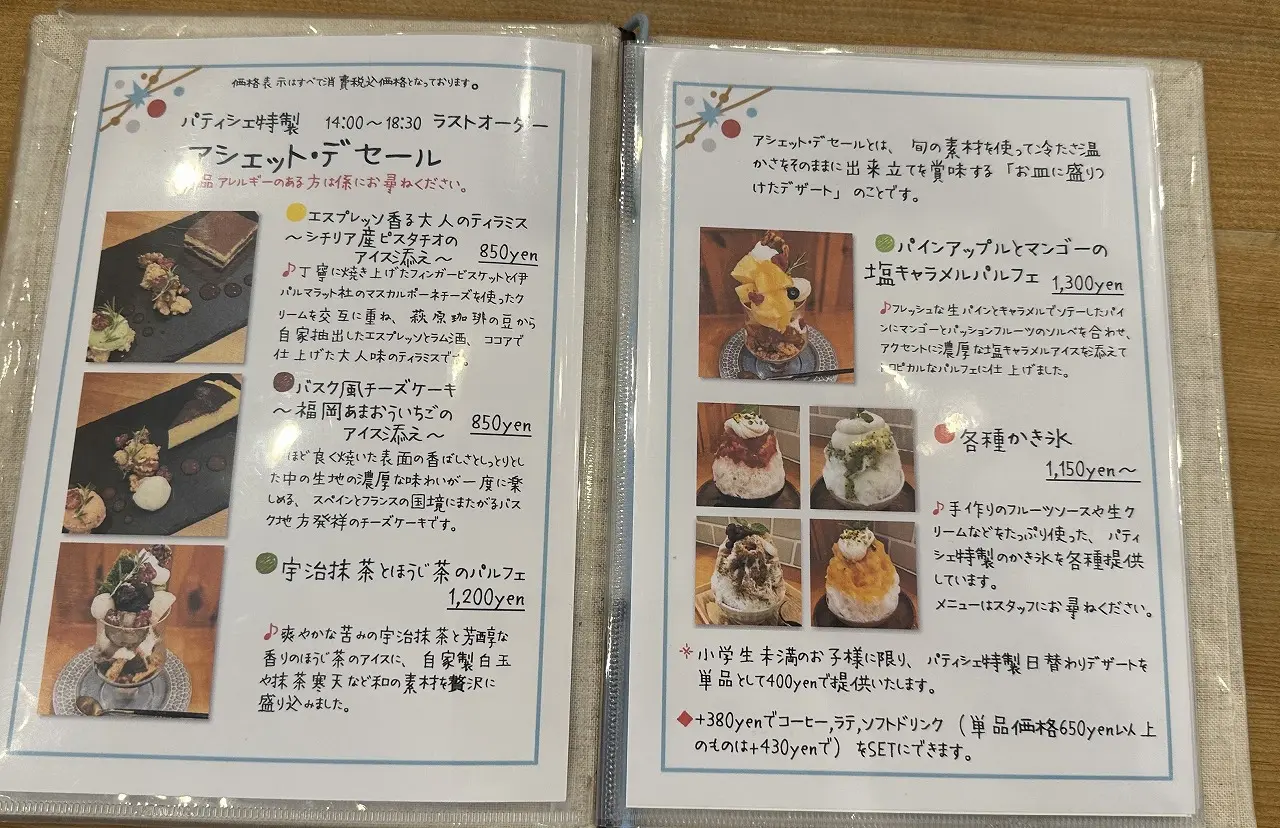 価格表示はすべて消費税込価格となっております。
パティシェ特製 14:00～18:30 ラストオーダー
アシェット・デセール
品アレルギーのある方は係にお尋ねください。
エスプレッソ香る大人のティラミス
～シチリア産ピスタチオの
アイス添え～ 850yen
♪丁寧に焼き上げたフィンガービスケットと伊
パルマラット社のマスカルポーネチーズを使ったク
リームを交互に重ね、萩原珈琲の豆から
自家抽出したエスプレッソとラム酒、ココアで
仕上げた大人味のティラミスです。
バスク風チーズケーキ
～福岡あまおういちごの
アイス添え～ 850yen
ほど良く焼いた表面の香ばしさとしっとりとし
た中の生地の濃厚な味わいが一度に楽
しめる、スペインとフランスの国境にまたがるバス
ク地方発祥のチーズケーキです。
宇治抹茶とほうじ茶のパルフェ
1,200yen
♪爽やかな苦みの宇治抹茶と芳醇な
香りのほうじ茶のアイスに、自家製白玉
や抹茶寒天など和の素材を贅沢に
盛り込みました。
アシェット・デセールとは、旬の素材を使って冷たさ温
かさをそのままに出来立てを賞味する「お皿に盛りつ
けたデザート」のことです。
パインアップルとマンゴーの
塩キャラメルパルフェ 1,300yen
♪フレッシュな生パインとキャラメルでソテーしたパイ
ンにマンゴーとパッションフルーツのソルベを合わせ、
アクセントに濃厚な塩キャラメルアイスを添えて
トロピカルなパルフェに仕上げました。
各種かき氷
1,150yen～
♪手作りのフルーツソースや生ク
リームなどをたっぷり使った、パティ
シェ特製のかき氷を各種提供
しています。
メニューはスタッフにお尋ねください。
※小学生未満のお子様に限り、パティシェ特製日替わりデザートを
単品として400yenで提供いたします。
◆+380yenでコーヒー,ラテ,ソフトドリンク（単品価格650yen以上
のものは+430yenで）をSETにできます。